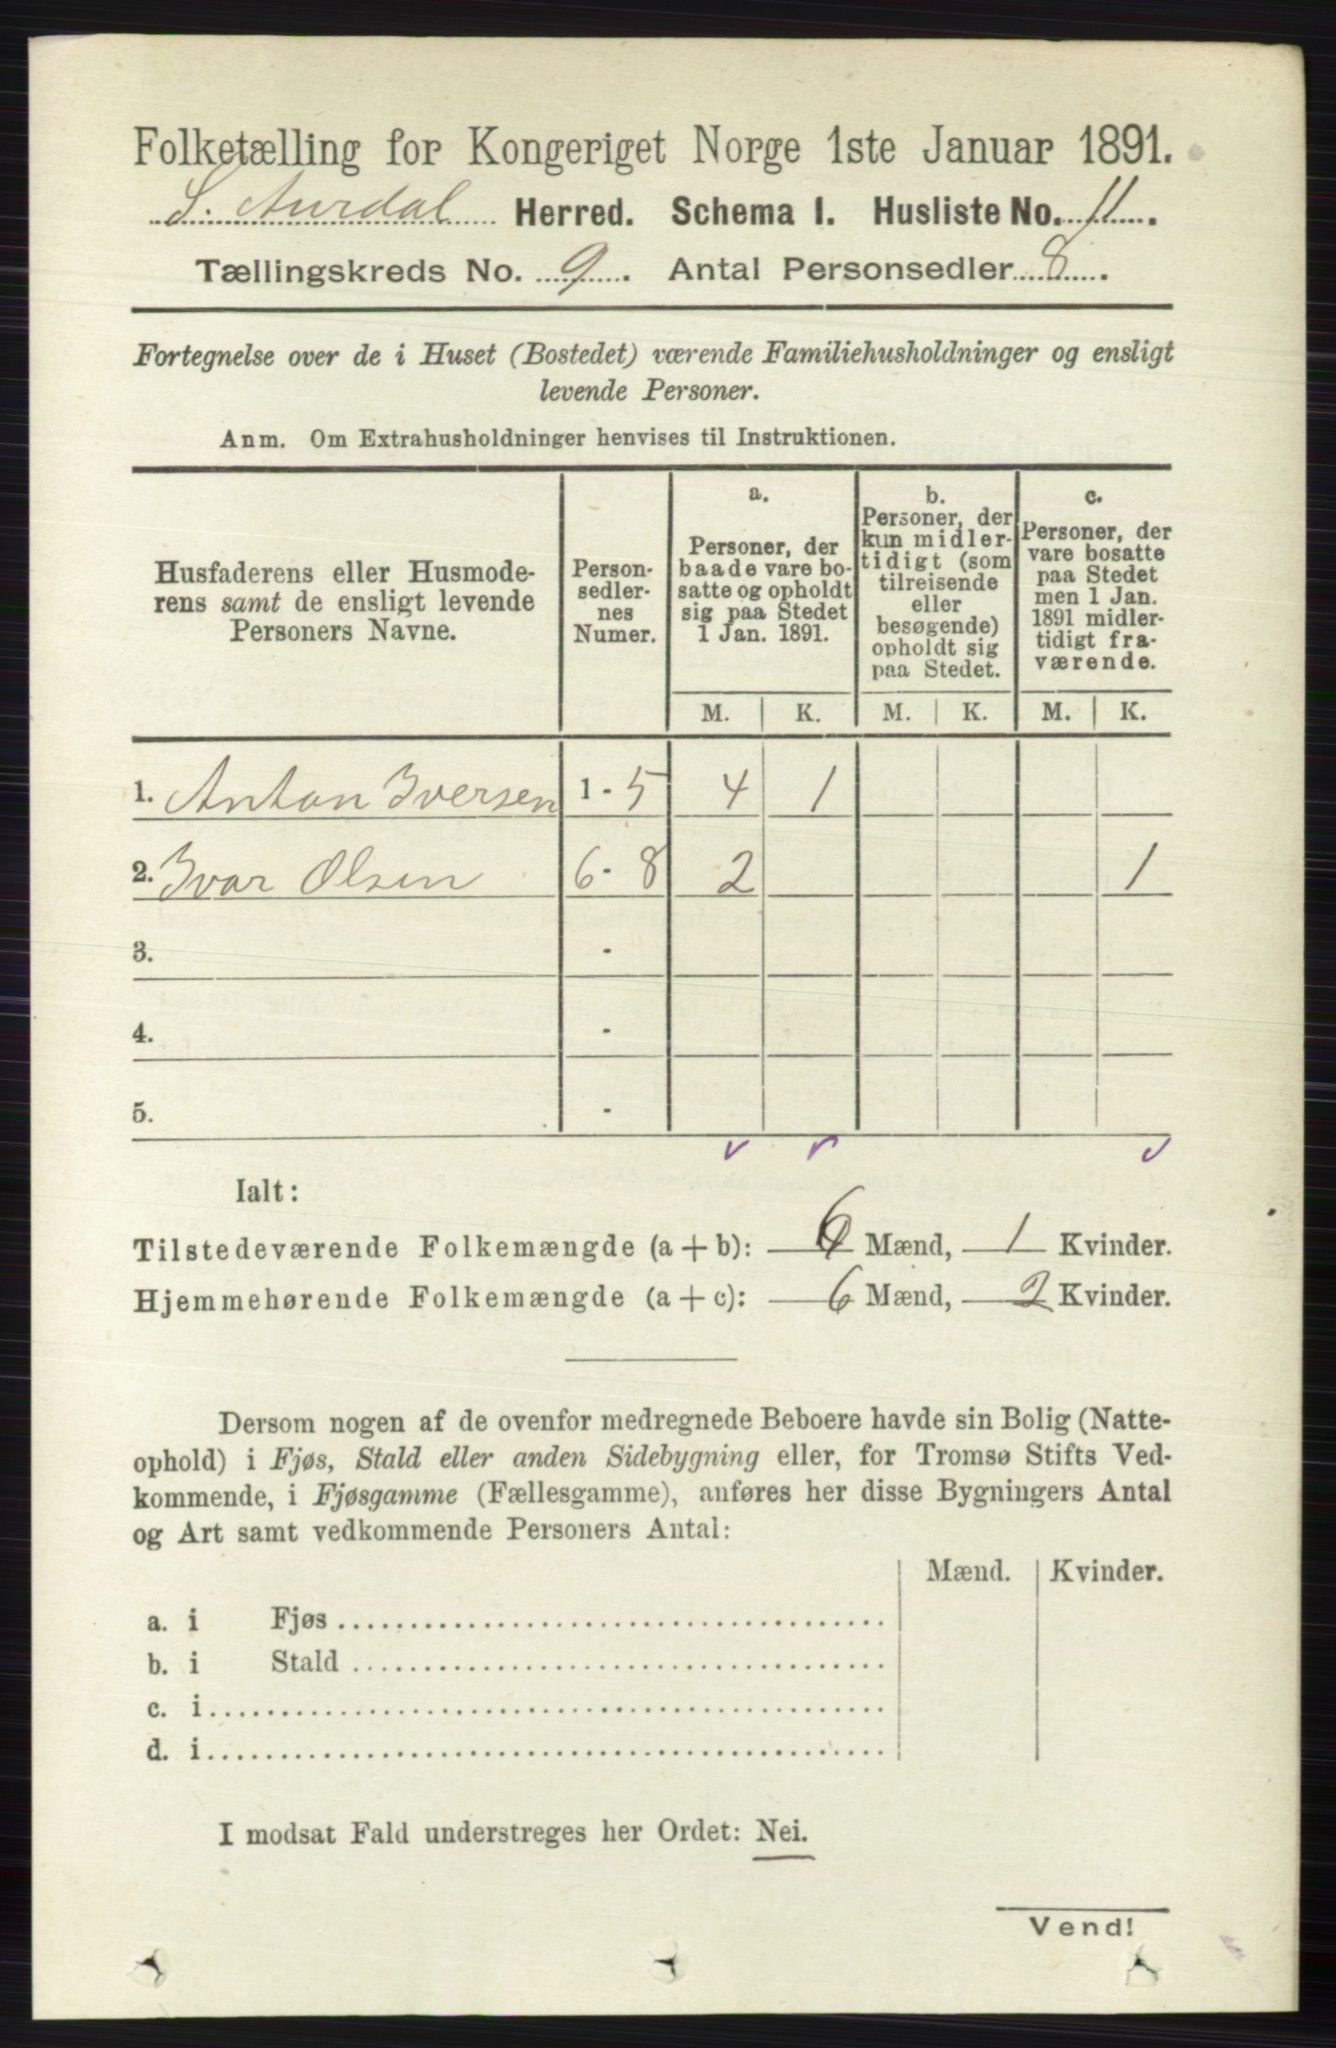 Folketælling for Kongeriget Norge 1ste Januar 1891.
S. Aurdal Herred. Schema I. Husliste No. 11.
Tællingskreds No. 9. Antal Personsedler 8.
Fortegnelse over de i Huset (Bostedet) værende Familiehusholdninger og ensligt
levende Personer.
Anm. Om Extrahusholdninger henvises til Instruktionen.
Husfaderens eller Husmode-
rens samt de ensligt levende
Personers Navne.
Person-
sedler-
nes
Numer.
a.
Personer, der
baade vare bo-
satte og opholdt
sig paa Stedet
1 Jan. 1891.
b.
Personer, der
kun midler-
tidigt (som
tilreisende
eller
besøgende)
opholdt sig
paa Stedet.
c.
Personer, der
vare bosatte
paa Stedet
men 1 Jan.
1891 midler-
tidigt fra-
værende.
M. K. M. K. M. K.
1. Anton Iversen 1 - 5 4 1
2. Ivar Olsen 6 - 8 2 1
3. -
4. -
5. -
Ialt:
Tilstedeværende Folkemængde (a + b): 6 Mænd, 1 Kvinder.
Hjemmehørende Folkemængde (a + c): 6 Mænd, 2 Kvinder.
Dersom nogen af de ovenfor medregnede Beboere havde sin Bolig (Natte-
ophold) i Fjøs, Stald eller anden Sidebygning eller, for Tromsø Stifts Ved-
kommende, i Fjøsgamme (Fællesgamme), anføres her disse Bygningers Antal
og Art samt vedkommende Personers Antal:
Mænd. Kvinder.
a. i Fjøs
b. i Stald
c. i
d. i
I modsat Fald understreges her Ordet: Nei.
Vend!